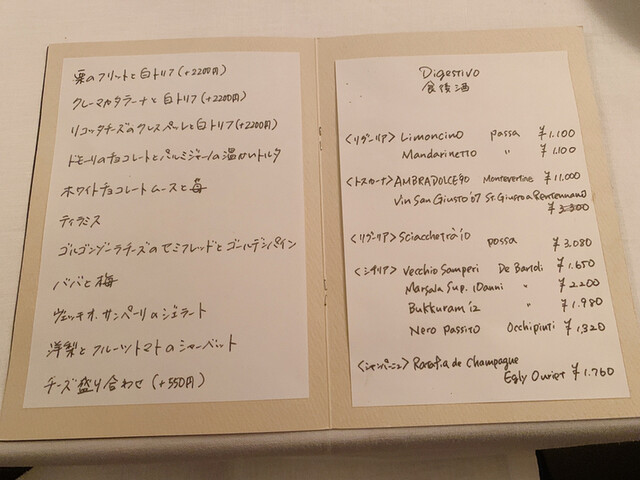 栗のフリットと白トリフ(+2200円)
クレーマカタラーナと白トリフ(+2200円)
リコッタチーズのクレスペッレと白トリフ(+2200円)
ドモーリのチョコレートとパルミジャーノの温かいトルタ
ホワイトチョコレートムースと苺
ティラミス
ゴルゴンゾーラチーズのセミフレッドとゴールデンパイン
ババと梅
ヴェッキオ.サンペーリのジェラート
洋梨とフルーツトマトのシャーベット
チーズ盛り合わせ(+550円)
Digestivo
食後酒
<リグーリア> Limoncino passa ¥1.100
Mandarinetto 〃 ¥1.100
<トスカーナ> AMBRADOLCE90 Montevertine ¥11.000
Vin San Giusto '07 St.Giusto a Rentennano
¥3.300
<リグーリア> Sciacchetrà '10 passa ¥3.080
<シチリア> Vecchio Samperi De Bartoli ¥1.650
Marsala Sup. 10anni 〃 ¥2200
Bukkuram '12 〃 ¥1.980
Nero Passito Occhipinti ¥1,320
<シャンパーニュ> Ratafia de Champagne
Egly Ouriet ¥1.760